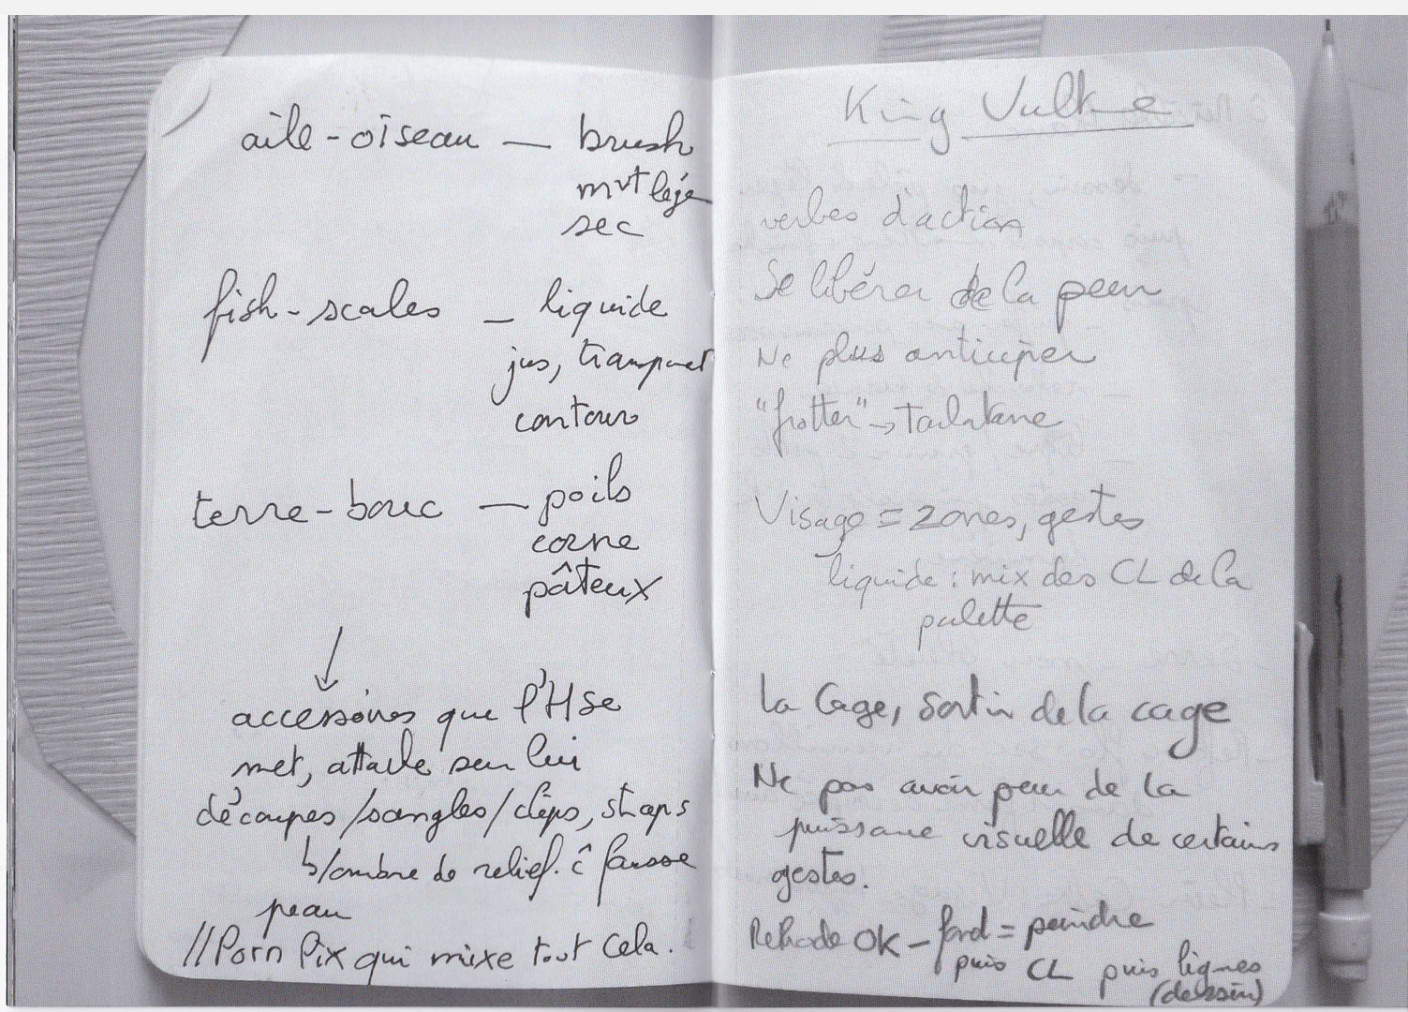 aile-oiseau — brush
mvt lége
sec
fish-scales — liquide
jus, transparet
contour
terre-bouc — poils
corne
pâteux
↓
accessoires que l'H se
met, attache sur lui
découpes/sangles/clips, straps
b/ombre de relief. ĉ fausse
peau
//Porn Pix qui mixe tout cela.
King Vulture
verbes d'action
Se libérer de la peur
Ne plus anticiper
"frotter" →
Visage = zones, gestes
liquide : mix des CL de la
palette
la Cage, sortir de la cage
Ne pas avoir peur de la
puissance visuelle de certains
gestes.
OK – fond = peindre
puis CL puis lignes
(dessin)